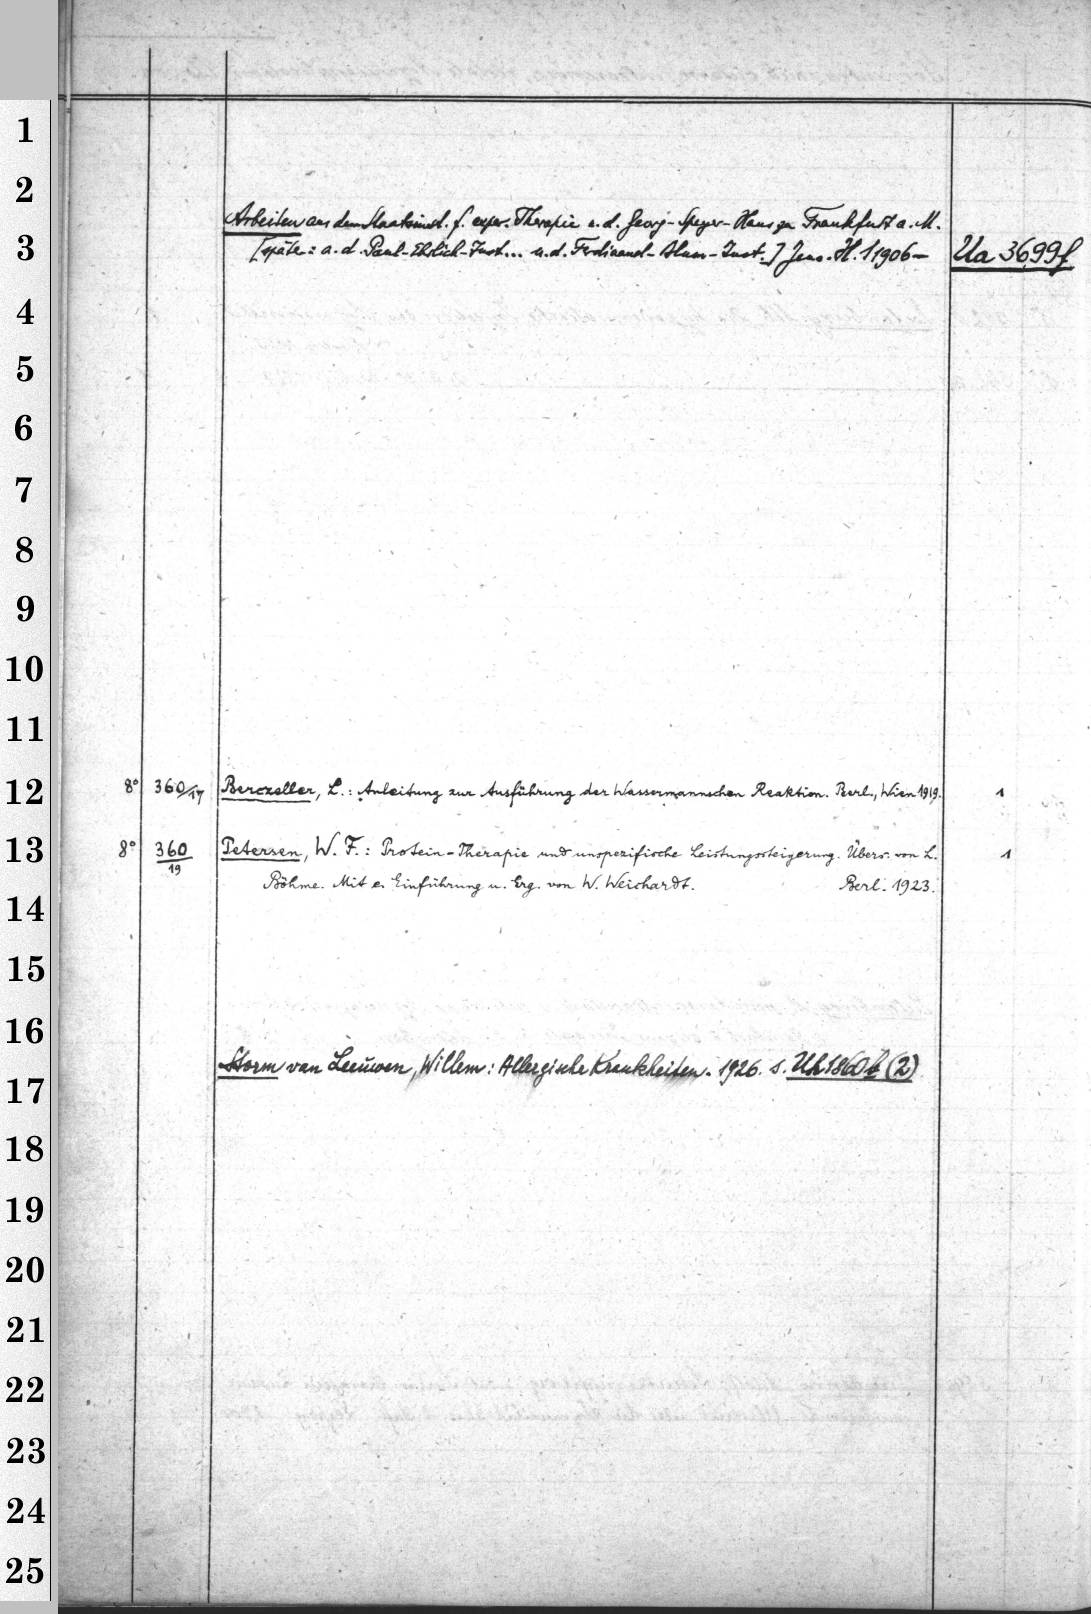 1
2
Arbeiten aus dem Staatsinst. f. exper. Therapie u. d. Georg-Speyer-Haus zu Frankfurt a. M.
3
[später: a. d. Paul-Ehrlich-Inst... u. d. Ferdinand-Blum-Inst.] Jena. H. 1 1906– Ua 3699f
4
5
6
7
8
9
10
11
12
8° 360/17 Berczeller, L.: Anleitung zur Ausführung der Wassermannschen Reaktion. Berl., Wien 1919. 1
13
8° 360/19 Petersen, W. F.: Protein-Therapie und unspezifische Leistungssteigerung. Übers. von L. 1
Böhme. Mit e. Einführung u. Erg. von W. Weichardt. Berl. 1923.
14
15
16
Storm van Leeuwen, Willem: Allergische Krankheiten. 1926. s. Uh 1860 (2)
17
18
19
20
21
22
23
24
25